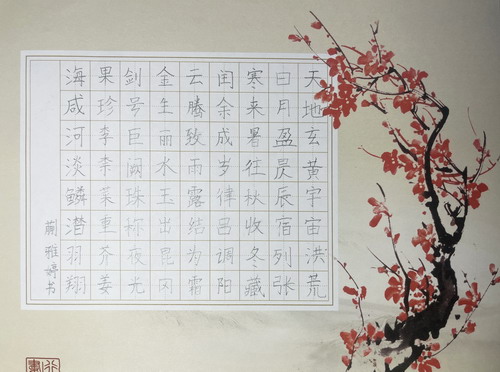 天地玄黄宇宙洪荒
日月盈昃辰宿列张
寒来暑往秋收冬藏
闰余成岁律吕调阳
云腾致雨露结为霜
金生丽水玉出昆冈
剑号巨阙珠称夜光
果珍李柰菜重芥姜
海咸河淡鳞潜羽翔
蒯雅婷书